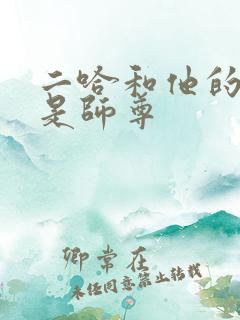 二哈和他的
是師尊
卿常在
未经同意禁止转载